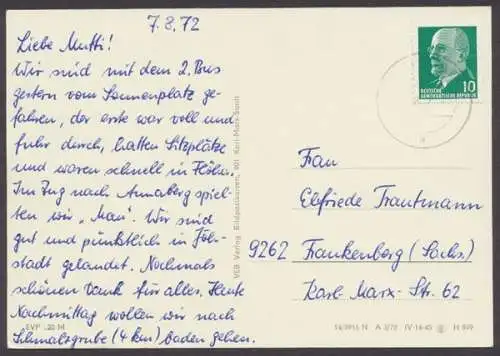 7.8.72
Liebe Mutti!
Wir sind mit dem 2. Bus
gestern vom Sonnenplatz ge-
fahren, der erste war voll und
fuhr durch, hatten Sitzplätze
und waren schnell in Flöha.
Im Zug nach Annaberg spiel-
ten wir „Mau". Wir sind
gut und pünktlich in Jöh-
stadt gelandet. Nochmals
schönen Dank für alles. Heute
Nachmittag wollen wir nach
Schmalzgrube (4 km) baden gehen.
EVP -,20 M
VEB Verlag Bild und Heimat, 901 Karl-Marx-Stadt
10
DEUTSCHE
DEMOKRATISCHE REPUBLIK
Frau
Elfriede Trautmann
9262 Frankenberg (Sachs.)
Karl-Marx-Str. 62
A 3/72 IV-14-45 H 809